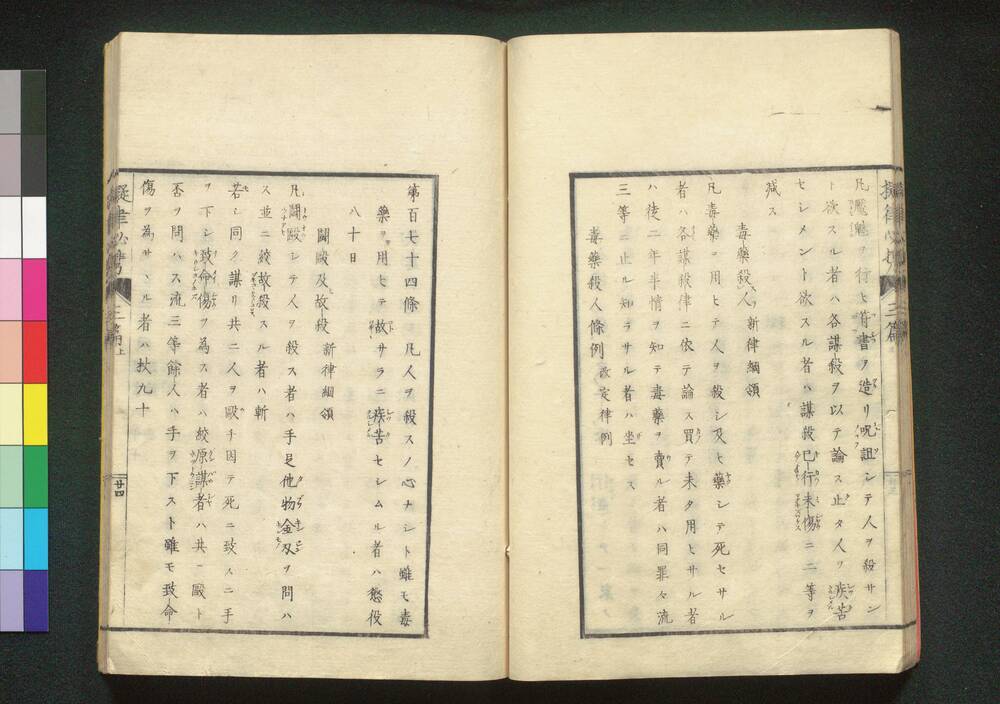 凡魘魅ヲ行ヒ符書ヲ造リ呪詛シテ人ヲ殺サン
ト欲スル者ハ各謀殺ヲ以テ論ス止タ人ヲ疾苦
セシメント欲スル者ハ謀殺已行未傷ニ二等ヲ
減ス
毒藥殺人 新律綱領
凡毒藥ヲ用ヒテ人ヲ殺シ及ヒ藥シテ死セサル
者ハ各謀殺律ニ依テ論ス買テ未タ用ヒサル者
ハ徒二年半情ヲ知テ毒藥ヲ賣ル者ハ同罪々流
三等ニ止ル知ラサル者ハ坐セス
毒藥殺人條例 改定律例
第百七十四條 凡人ヲ殺スノ心ナシト雖モ毒
藥ヲ用ヒテ故サラニ疾苦セシムル者ハ懲役
八十日
鬪毆及故殺 新律綱領
凡鬪毆シテ人ヲ殺ス者ハ手足他物金刄ヲ問ハ
ス並ニ絞故殺スル者ハ斬
若シ同ク謀リ共ニ人ヲ毆チ因テ死ニ致スニ手
ヲ下シ致命傷ヲ為ス者ハ絞原謀者ハ共ニ毆ト
否ヲ問ハス流三等餘人ハ手ヲ下スト雖モ致命
傷ヲ為サヽル者ハ杖九十
三篇上
廿四